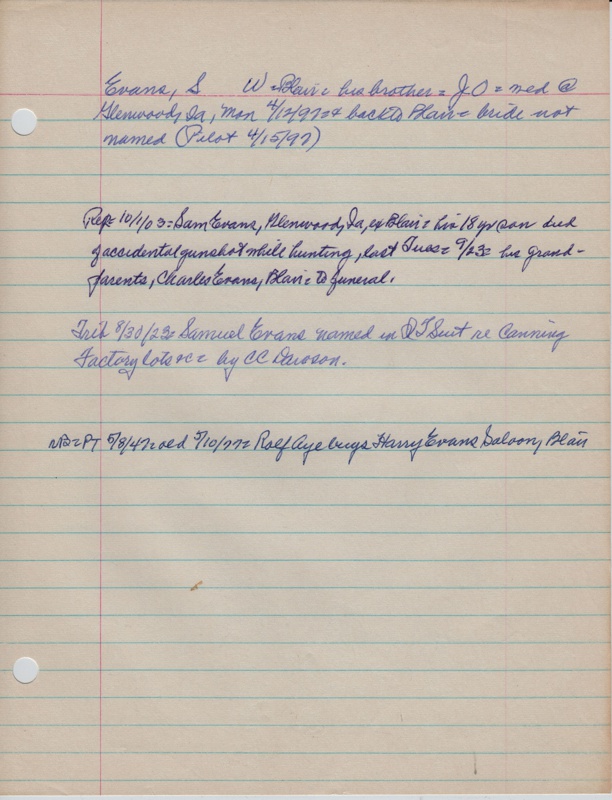 Evans, S W = Blair = his brother = J O = wed @
Glenwood, Ia, Mon 4/12/97 = & back to Blair = bride not
named (Pilot 4/15/97)
Rep = 10/1/03 = Sam Evans, Glenwood, Ia, ex Blair = his 18 yr son died
of accidental gunshot while hunting, last Tues = 9/23 = his grand-
parents, Charles Evans, Blair = to funeral.
Trib 8/30/23 = Samuel Evans named in Q T Suit re Canning
Factory lots &c = by C C Dawson.
NB = PT 5/8/47 = old 5/10/77 = Rolf Aye buys Harry Evans Saloon, Blair